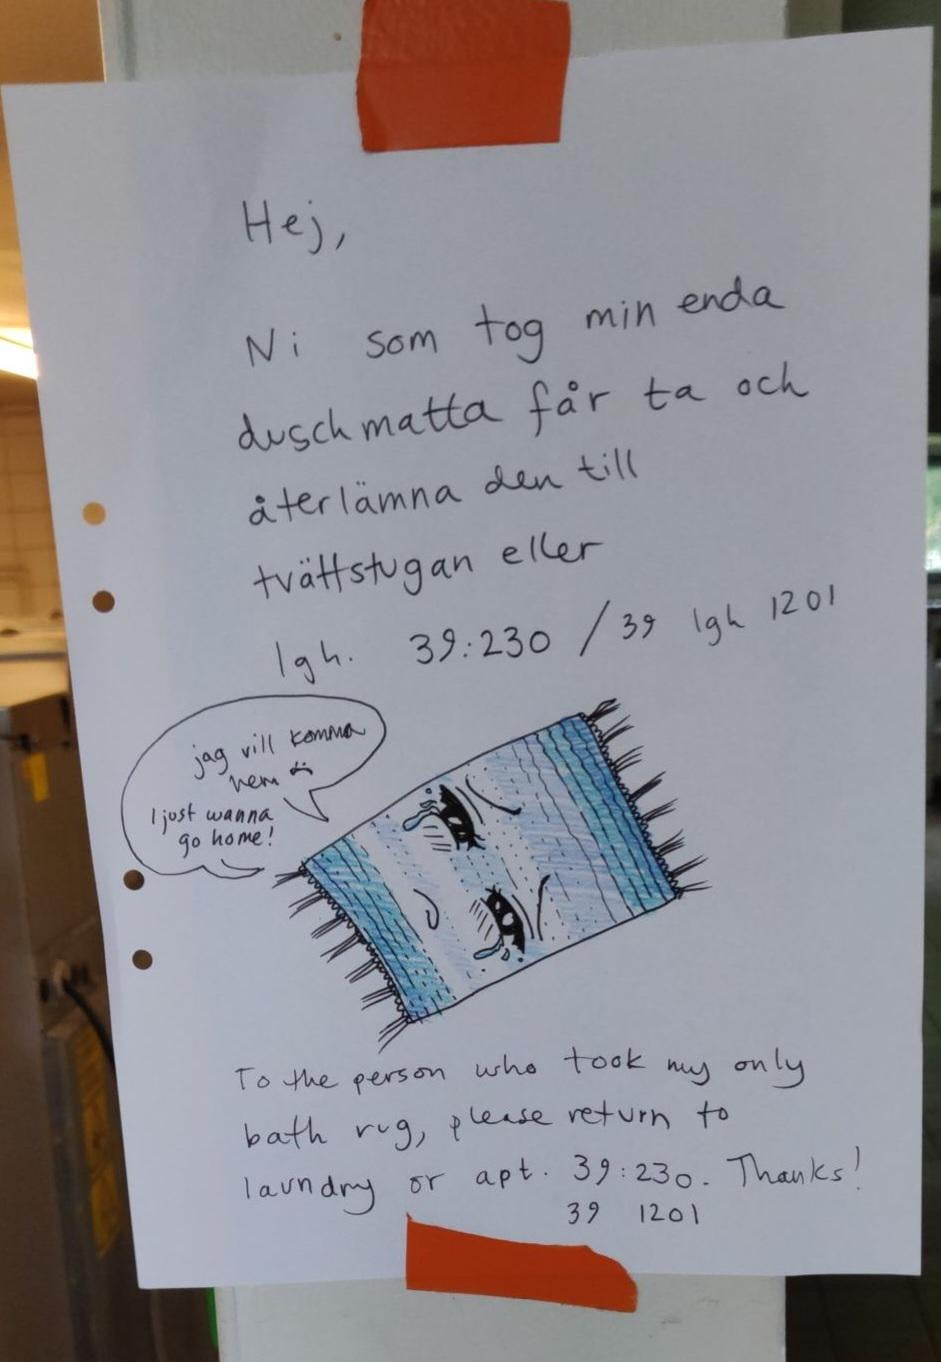 Hej,
Ni som tog min enda
duschmatta får ta och
återlämna den till
tvättstugan eller
lgh. 39:230 / 39 lgh 1201
jag vill komma
hem
I just wanna
go home!
To the person who took my only
bath rug, please return to
laundry or apt. 39:230. Thanks!
39 1201